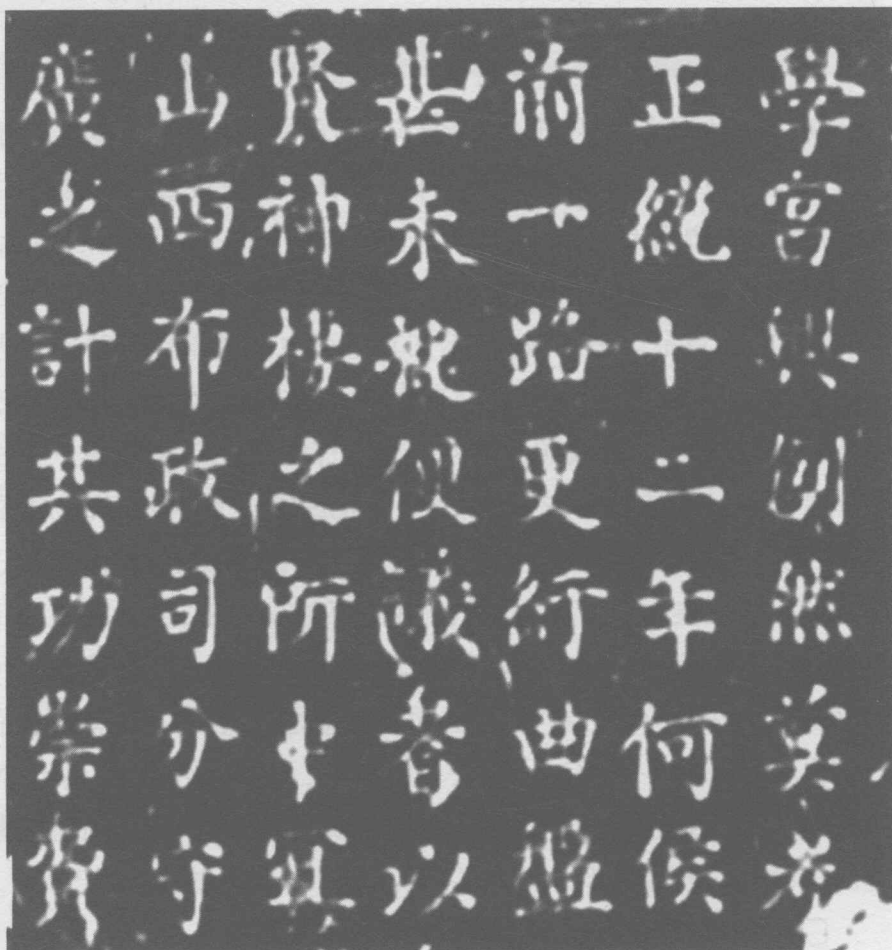 學宮興創然莫考
正統十二年何侯
前一路更紆曲盤
甚未便者以
賢神棲之所中
山西布政司分守
廣之計其功崇費